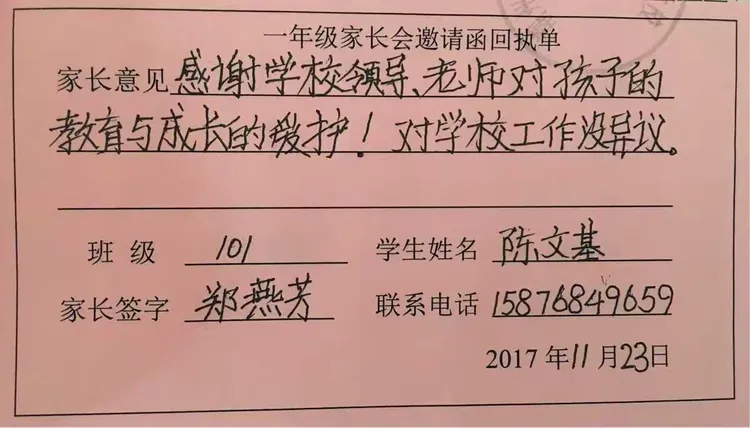 一年级家长会邀请函回执单
家长意见 感谢学校领导、老师对孩子的
教育与成长的爱护！对学校工作没异议。
班 级 101 学生姓名 陈文基
家长签字 郑燕芳 联系电话 15876849659
2017 年11月23日